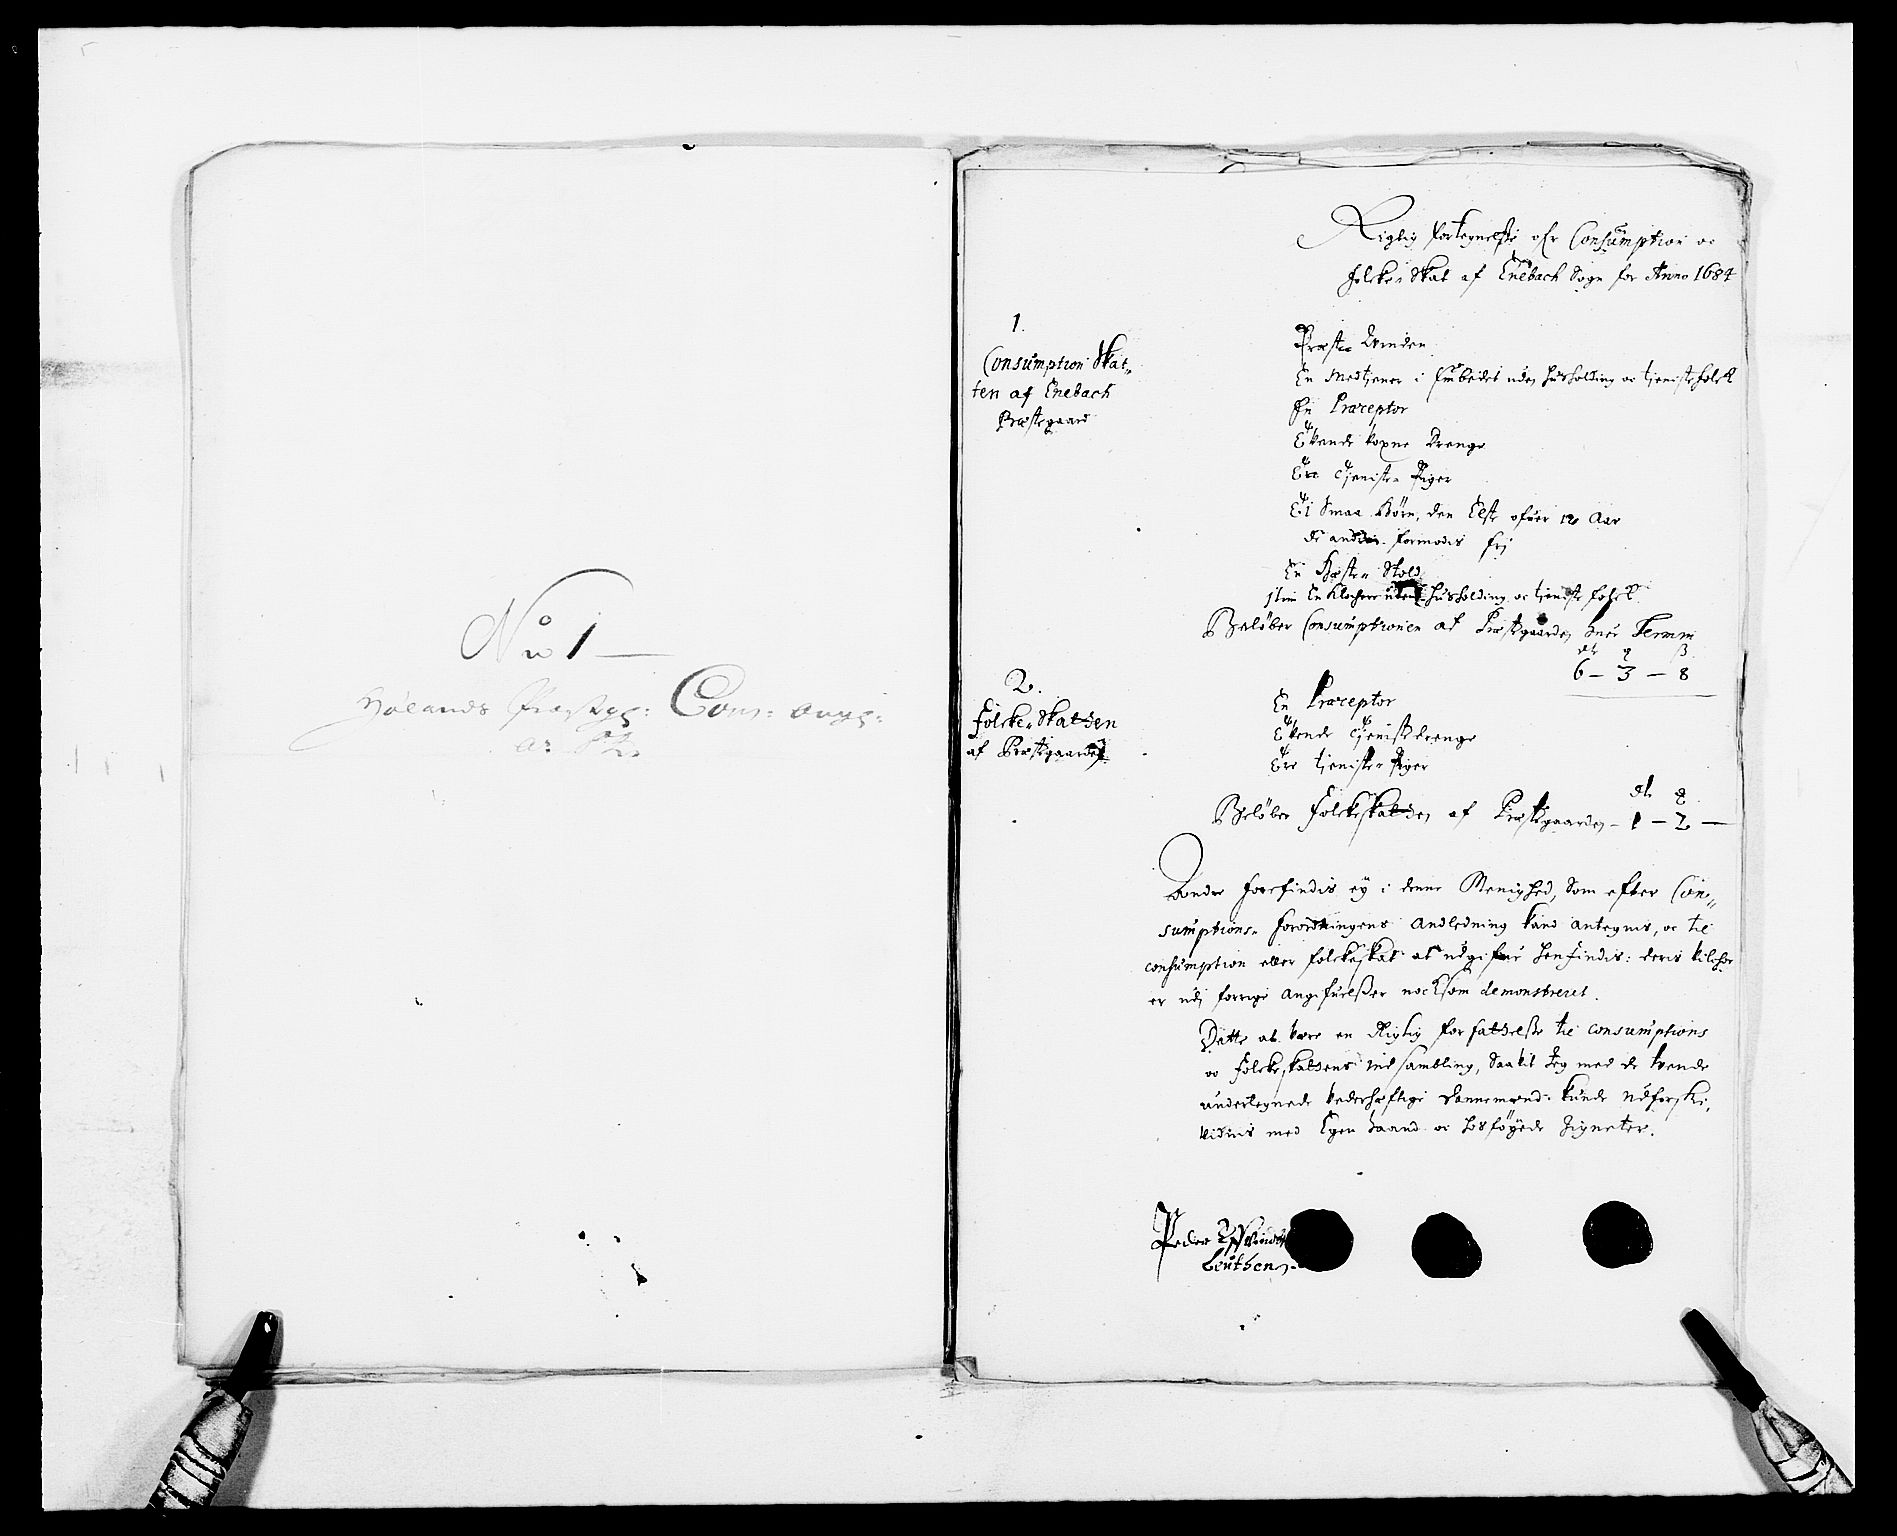 No 1
Hølands Præstgl: Cons: ang:
Rigtig fortegnelse ofr Consumption oc
folcke Skat af Enebach Sogn for Anno 1684
1.
Consumption Skat-
ten af Enebach
Præstegaard
Præste Qvinden
En Medtjener i Embedet uden husholding oc tjenistefolck
En Præceptor
Tvende voxne Drenge
Tre Tjeniste Piger
Ti Smaa Børn, den Elste ofuer 12 Aar
de andre formodis frj
En Hæste Skold
Item En Klocher uden husholding oc tjeniste folck.
Beløber Consumptionen af Præstgaarden huer Termin
dlr ß
6 - 3 - 8
2.
Folcke Skatten
af Præstgaarden
En Præceptor
Tvende Tjenistedrenge
Tre tjeniste Piger
dlr
Beløber Folckeskatten af Præstgaarden - 1 - 2 -
Andre forefindis ej i denne Menighed, Som efter Con-
sumptions forordningens Andledning kand antegnis, oc til
consumption eller folckeskat at udgifue henfindis: deris vilchor
er udj forrige Angifuelßer nocksom demonstreret.
Dette at være en Rigtig forfattelse til consumptions
oc folckeskattens indsambling, Saavit Jeg med de tvende
undertegnede vederhæftige Dannemænd kunde udforske,
vidnis med Egen haand oc hosføyede Signeter.
Peder
Leuthen